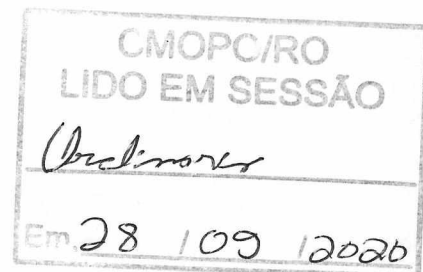 CMOPO/RO
LIDO EM SESSÃO
Ordinaria
Em, 28 / 09 / 2020